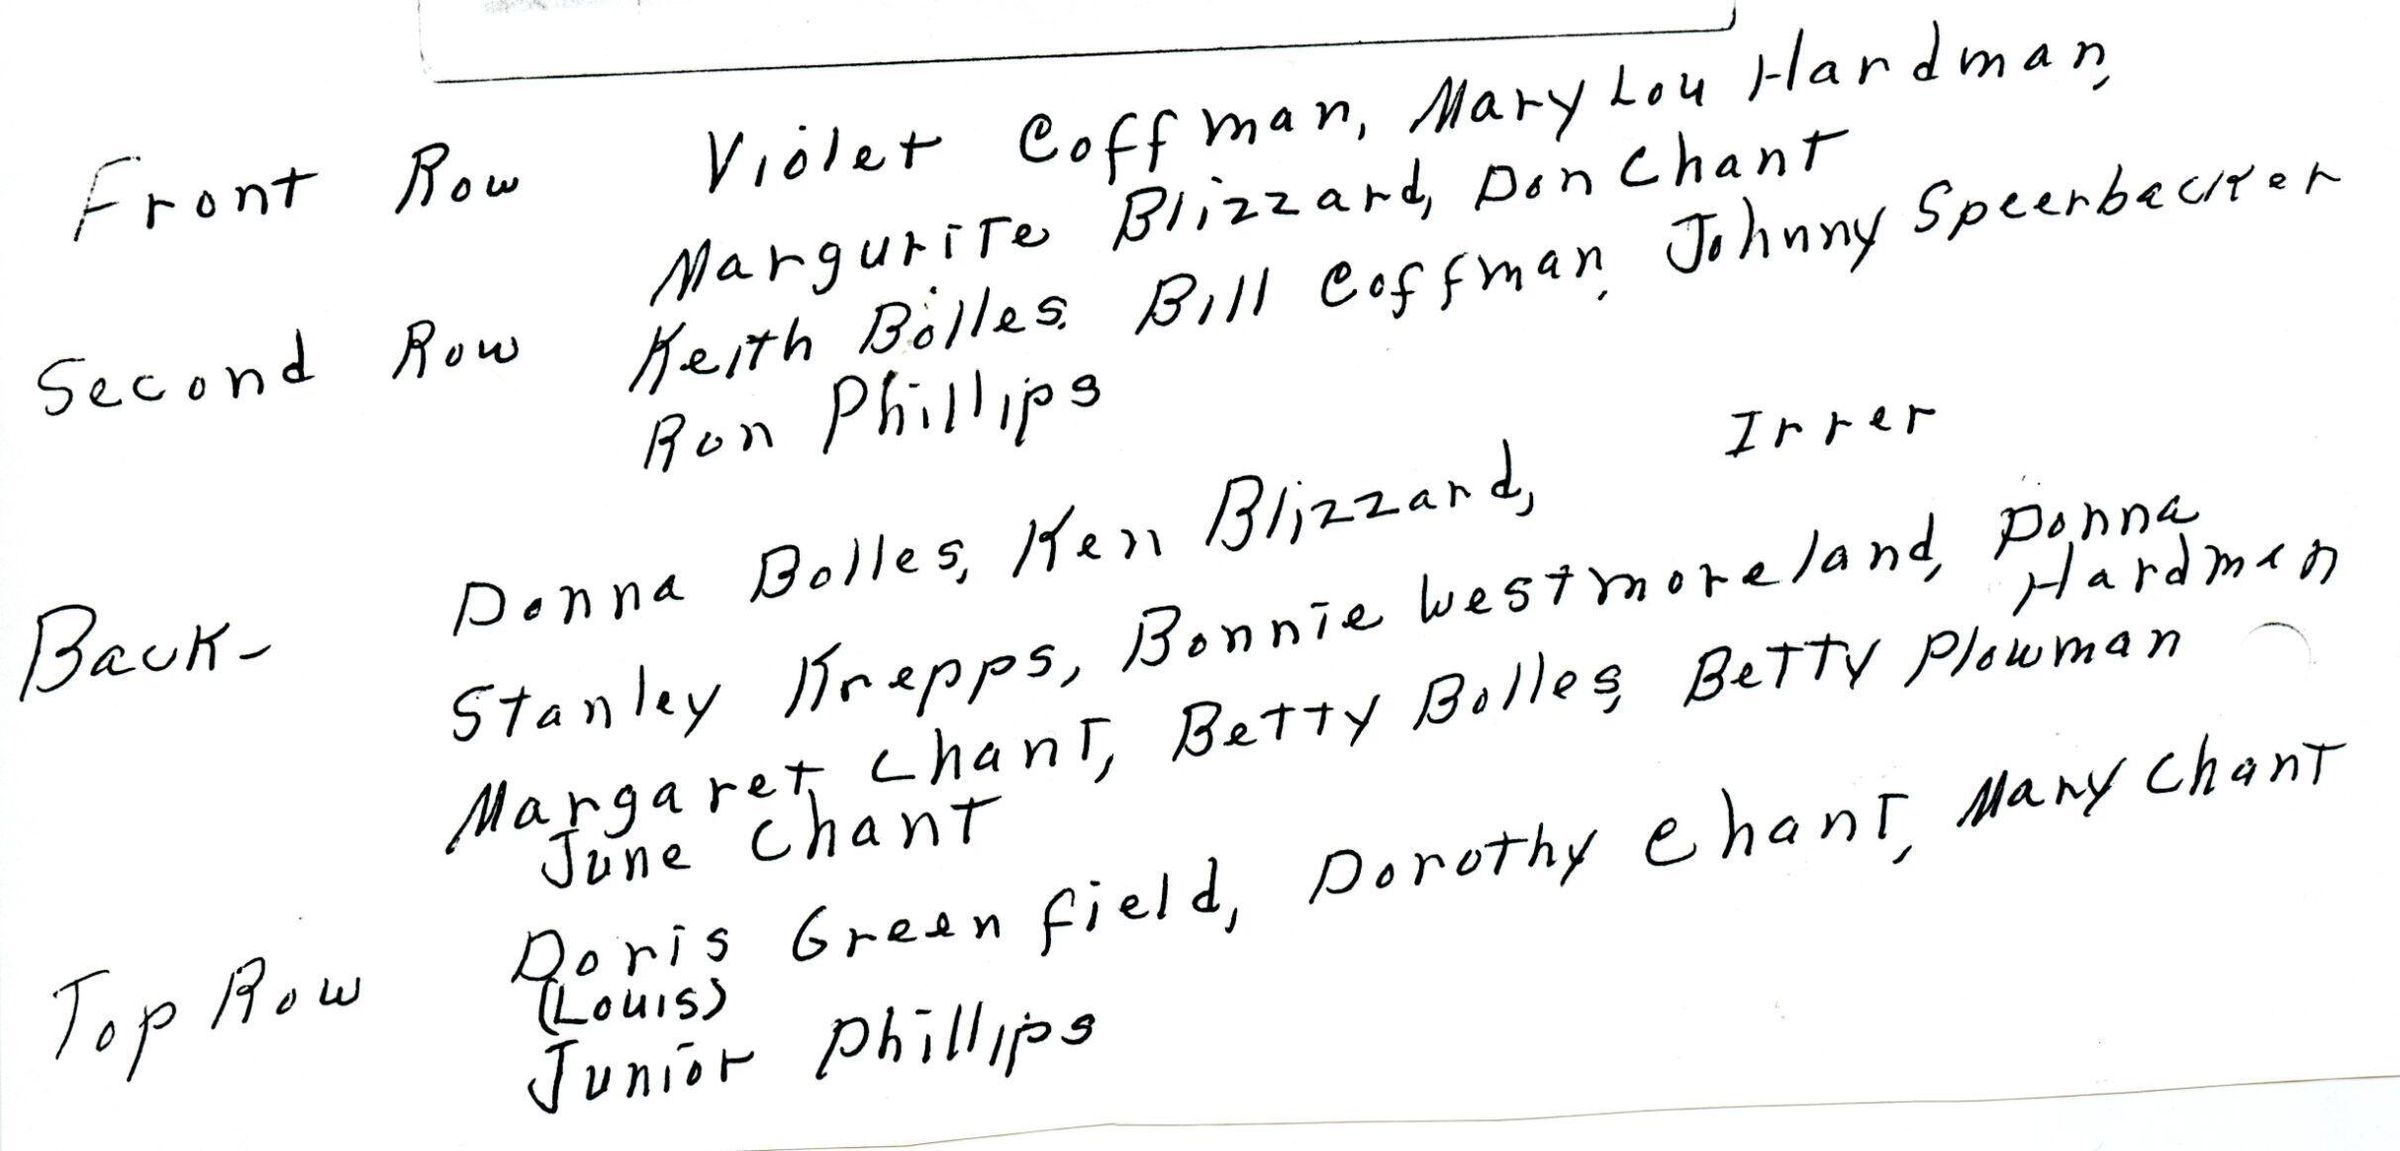 Front Row Violet Coffman, Mary Lou Hardman,
Margurite Blizzard, Don Chant
Second Row Keith Bolles, Bill Coffman, Johnny Speerbacker
Ron Phillips
Irrer
Back- Donna Bolles, Ken Blizzard,
Stanley Krepps, Bonnie Westmoreland, Donna
Hardman
Margaret Chant, Betty Bolles, Betty Plowman
June Chant
Top Row Doris Greenfield, Dorothy Chant, Mary Chant
(Louis)
Junior Phillips